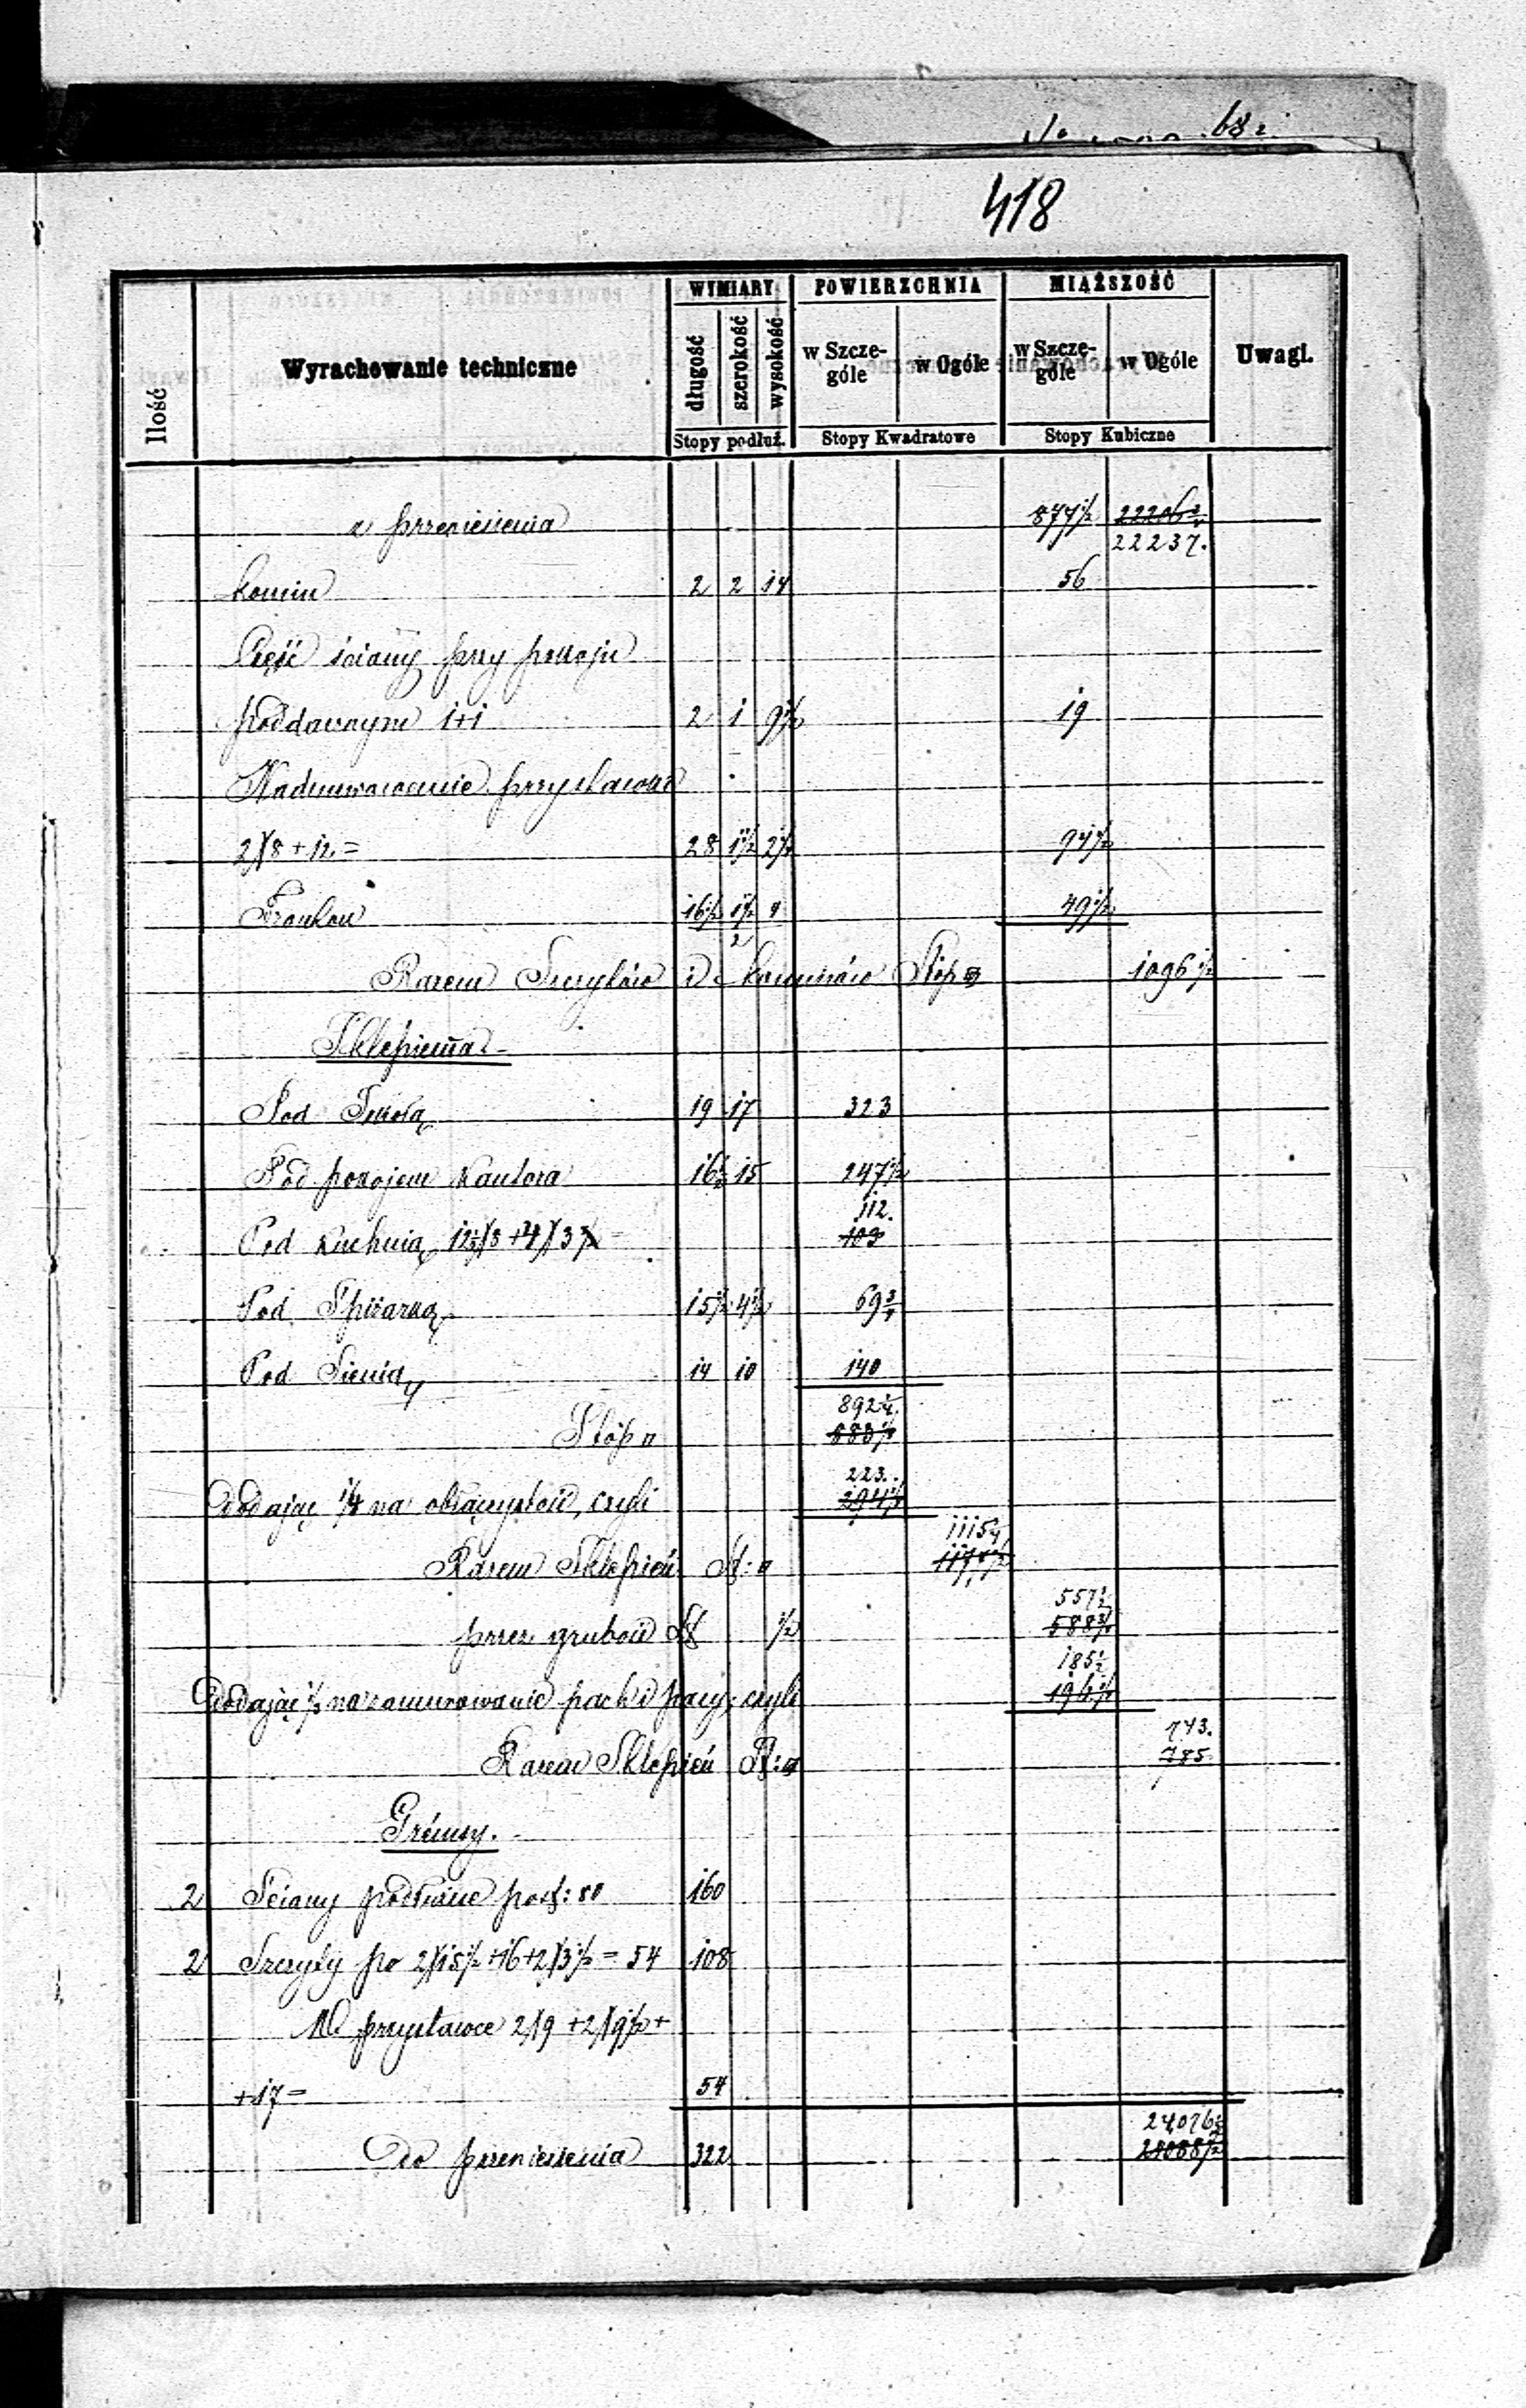 418
Ilość
Wyrachowanie techniczne
WYMIARY
długość szerokość wysokość
Stopy podłuż.
POWIERZCHNIA
w Szczególe w Ogóle
Stopy Kwadratowe
MIĄŻSZOŚĆ
w Szczególe w Ogóle
Stopy Kubiczne
Uwagi.
z przeniesienia 877½ 22206¾
22237.
komin 2 2 14 56
Część ściany przy pokoju
poddasznym 1+1 2 1 9½ 19
Nadmurowanie przystawki
2)(8+12= 28 1½ 2½ 94½
Fronton 16½ 1½ 4 49½
2
Razem Szczytów i kominów Stóp 1096½
Sklepienia
Pod Szkołą 19 17 323
Pod pokojem Kantora 16½ 15 247½
112.
Pod Kuchnią 12½)(8+4)(3 109
Pod Spiżarką 15½ 4½ 69¾
Pod Sienią 14 10 140
892¼.
Stóp □ 883¼
223.
Dodając ¼ na obłączystość, czyli 294¼
1115¼
Razem Sklepień St: □ 1177½
557½
przez grubość St ½ 588¾
185½
Dodając ⅓ na zamurowanie pach i pasy, czyli 196¼
743.
Razem Sklepień St: 785
Gzémsy.
2 Ściany podłużne po st: 80 160
2 Szczyty po 2)(15½+16+2)(3½=54 108
W przystawce 2)(9+2)(9½+
+17= 54
24,076½
Do przeniesienia 322 24088½